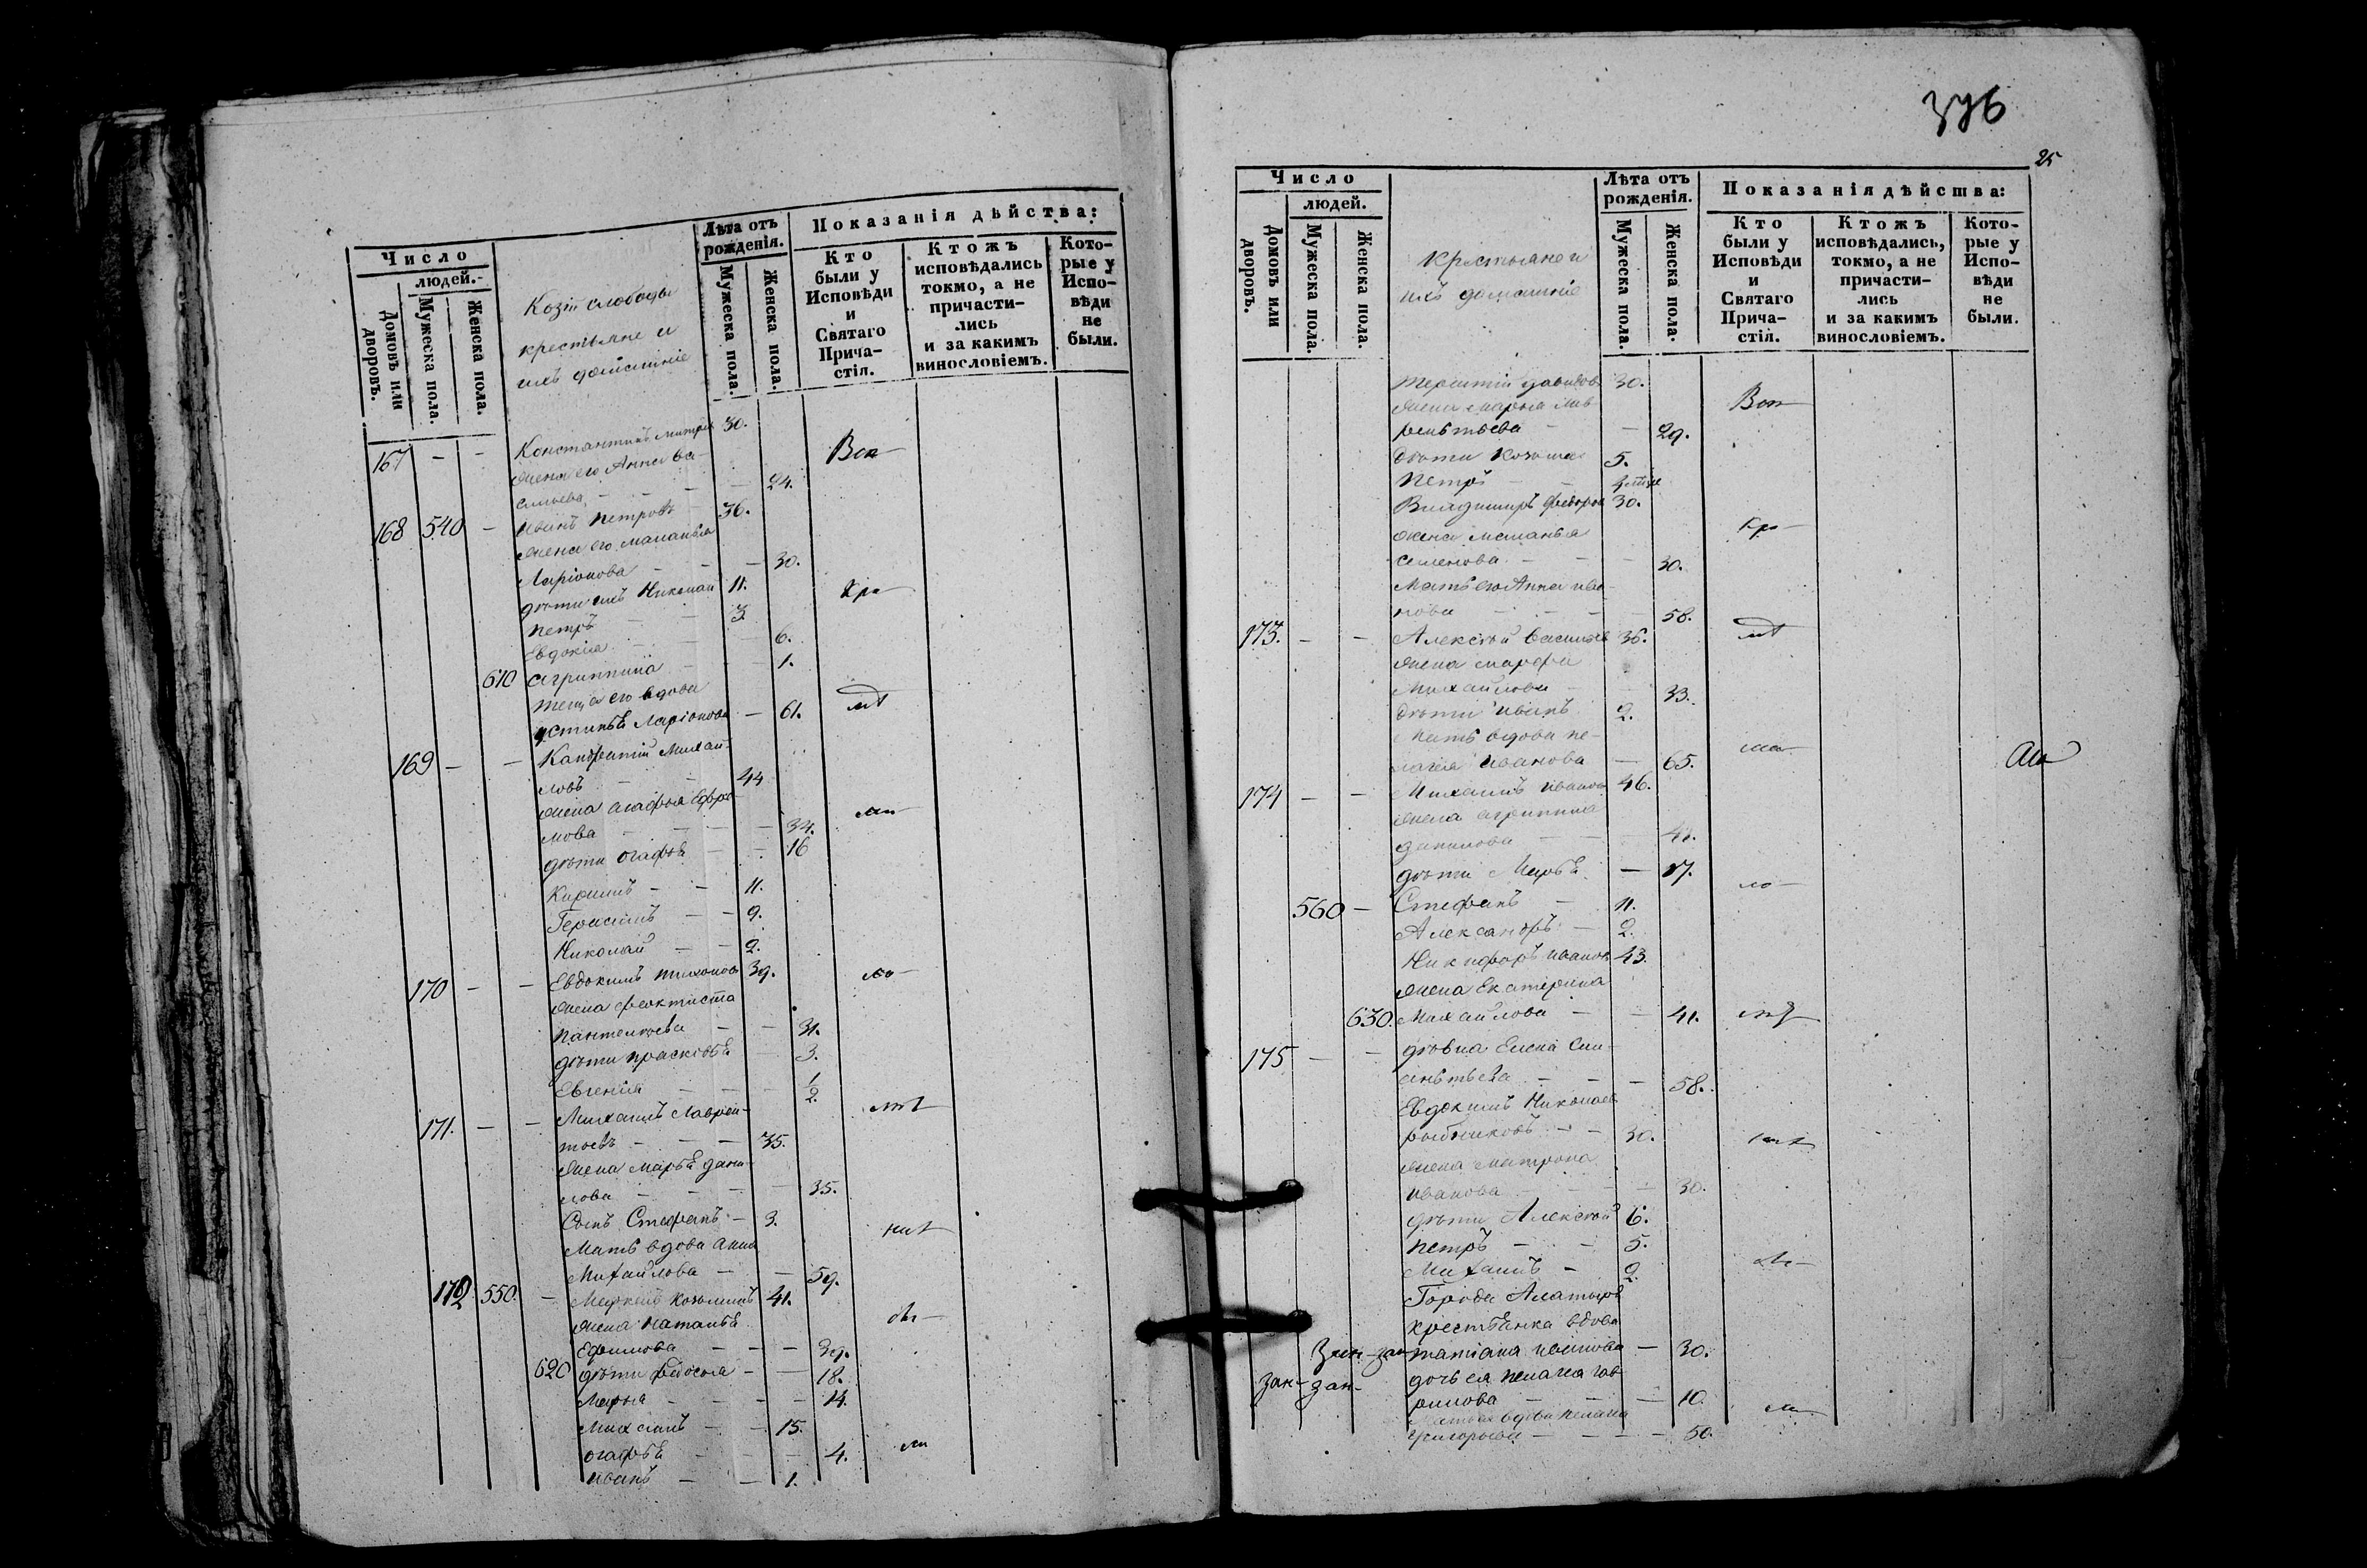 Число
людей.
Домовъ или дворовъ.
Мужеска пола.
Женска пола.
слободы
крестьяне и
ихъ домашніе
Лѣта отъ рожденія.
Мужеска пола.
Женска пола.
Показанія дѣйства:
Кто были у Исповѣди и Святаго Прича-стія.
Ктожъ исповѣдались токмо, а не причасти-лись и за какимъ винословіемъ.
Кото-рые у Испо-вѣди не были.
167 — — Константинъ 30.
жена его Анна Ва-
сильева — — — 24.
168 540 — Иванъ Петровъ 36.
жена его Маланья
Ларіонова — — — 30.
дѣти ихъ Николай 11.
Петръ — — 3
Евдокія — — 6.
610 Агриппина — — 1.
теща его вдова
Устинья Ларіонова — 61.
169 — — Михай-
ловъ — — 44
жена Агафья Ефре-
мова — — — 34.
дѣти Агафья — — 16
Кирилъ — — 11.
Герасимъ — — 9.
Николай — — 2.
170 — — Евдокимъ Тихоновъ 39.
жена Феоктиста
Пантелѣева — — 31.
дѣти Прасковья — 3.
Евгенія — — — 1/2
171. — — Михаилъ Лаврен-
тьевъ — — — 35.
жена Марья Дани-
лова — — — — 35.
Сынъ Стефанъ — 3.
Мать вдова Анна
Михайлова — — 59.
172 550. — Козьминъ 41.
жена Наталья
Ефимова — — — 39.
620 дѣти Федосья — — 18.
Марья — — — — 14.
Михаилъ — — 15.
Агафья — — — 4.
Иванъ — — 1.
376
25
Число
людей.
Домовъ или дворовъ.
Мужеска пола.
Женска пола.
Крестьяне и
ихъ домашніе
Лѣта отъ рожденія.
Мужеска пола.
Женска пола.
Показанія дѣйства:
Кто были у Исповѣди и Святаго Прича-стія.
Ктожъ исповѣдались, токмо, а не причасти-лись и за какимъ винословіемъ.
Кото-рые у Испо-вѣди не были.
Терентій Давидовъ 30.
жена Марья Лав-
рентьева — — 29.
дѣти Козьма 5.
Петръ — —
Владимиръ Федоровъ 30.
жена Маланья
Семенова — — — 30.
Мать его Анна Ива-
нова — — — — 58.
173. — — Алексѣй Васильевъ 36.
жена Марфа
Михайлова — 33.
дѣти Иванъ 2.
Мать вдова Пе-
лагея Иванова — 65.
174 — — Михаилъ Ивановъ 46.
жена Агриппина
Данилова — —
дѣти Марья — 17.
560 — Стефанъ — 11.
Александръ — 2.
Никифоръ Ивановъ 43.
жена Екатерина
630. Михайлова — — 41.
175 — — дѣвка Елена
— — — 58.
Евдокимъ Николаевъ
— — 30.
жена Матрона
Иванова — — — 30.
дѣти Алексѣй 6.
Петръ — — 5.
Михаилъ — 2.
Города Алатыря
крестьянка вдова
Татіана — 30.
дочь ея Пелагея Гав-
рилова — — — 10.
вдова Пелагея
Григорьева — — — 50.